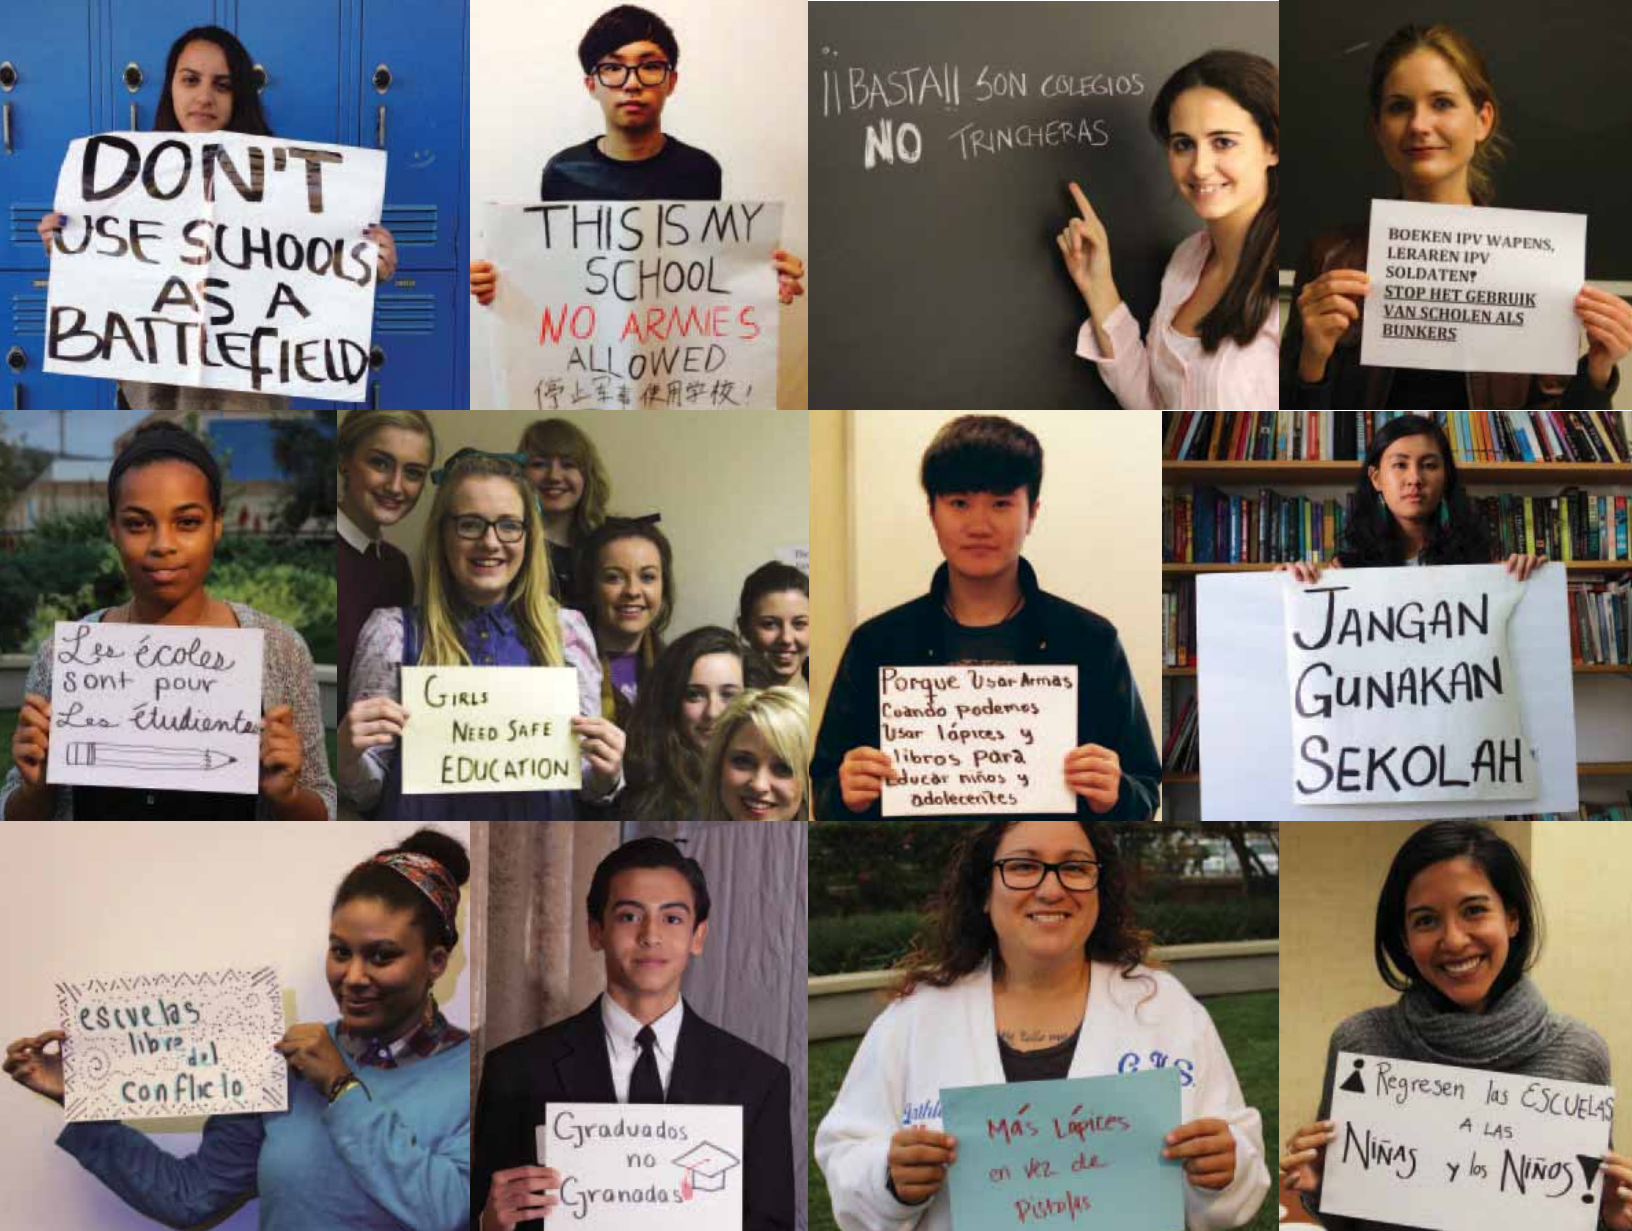 DON'T
USE SCHOOLS
AS A
BATTLEFIELD
THIS IS MY
SCHOOL
NO ARMIES
ALLOWED
停止军事使用学校!
¡¡BASTA!! SON COLEGIOS
NO TRINCHERAS
BOEKEN IPV WAPENS,
LERAREN IPV
SOLDATEN!
STOP HET GEBRUIK
VAN SCHOLEN ALS
BUNKERS
Les écoles
sont pour
Les étudientes
GIRLS
NEED SAFE
EDUCATION
Porque Usar Armas
Cuando podemos
Usar lápices y
libros para
Educar niños y
adolecentes
JANGAN
GUNAKAN
SEKOLAH
escuelas
libre
del
conflicto
Graduados
no
Granadas
G.H.S.
Más Lápices
en vez de
Pistolas
¡Regresen las ESCUELAS
A LAS
NIÑAS y los NIÑOS!